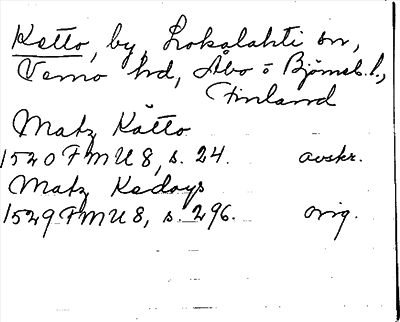 Ketto, by, Lokalahti sn,
Vemo hd, Åbo o Björneb. l.,
Finland
Matz Kätto
1520 FMU 8, s. 24. avskr.
Matz Kedoys
1529 FMU 8, s. 296. orig.